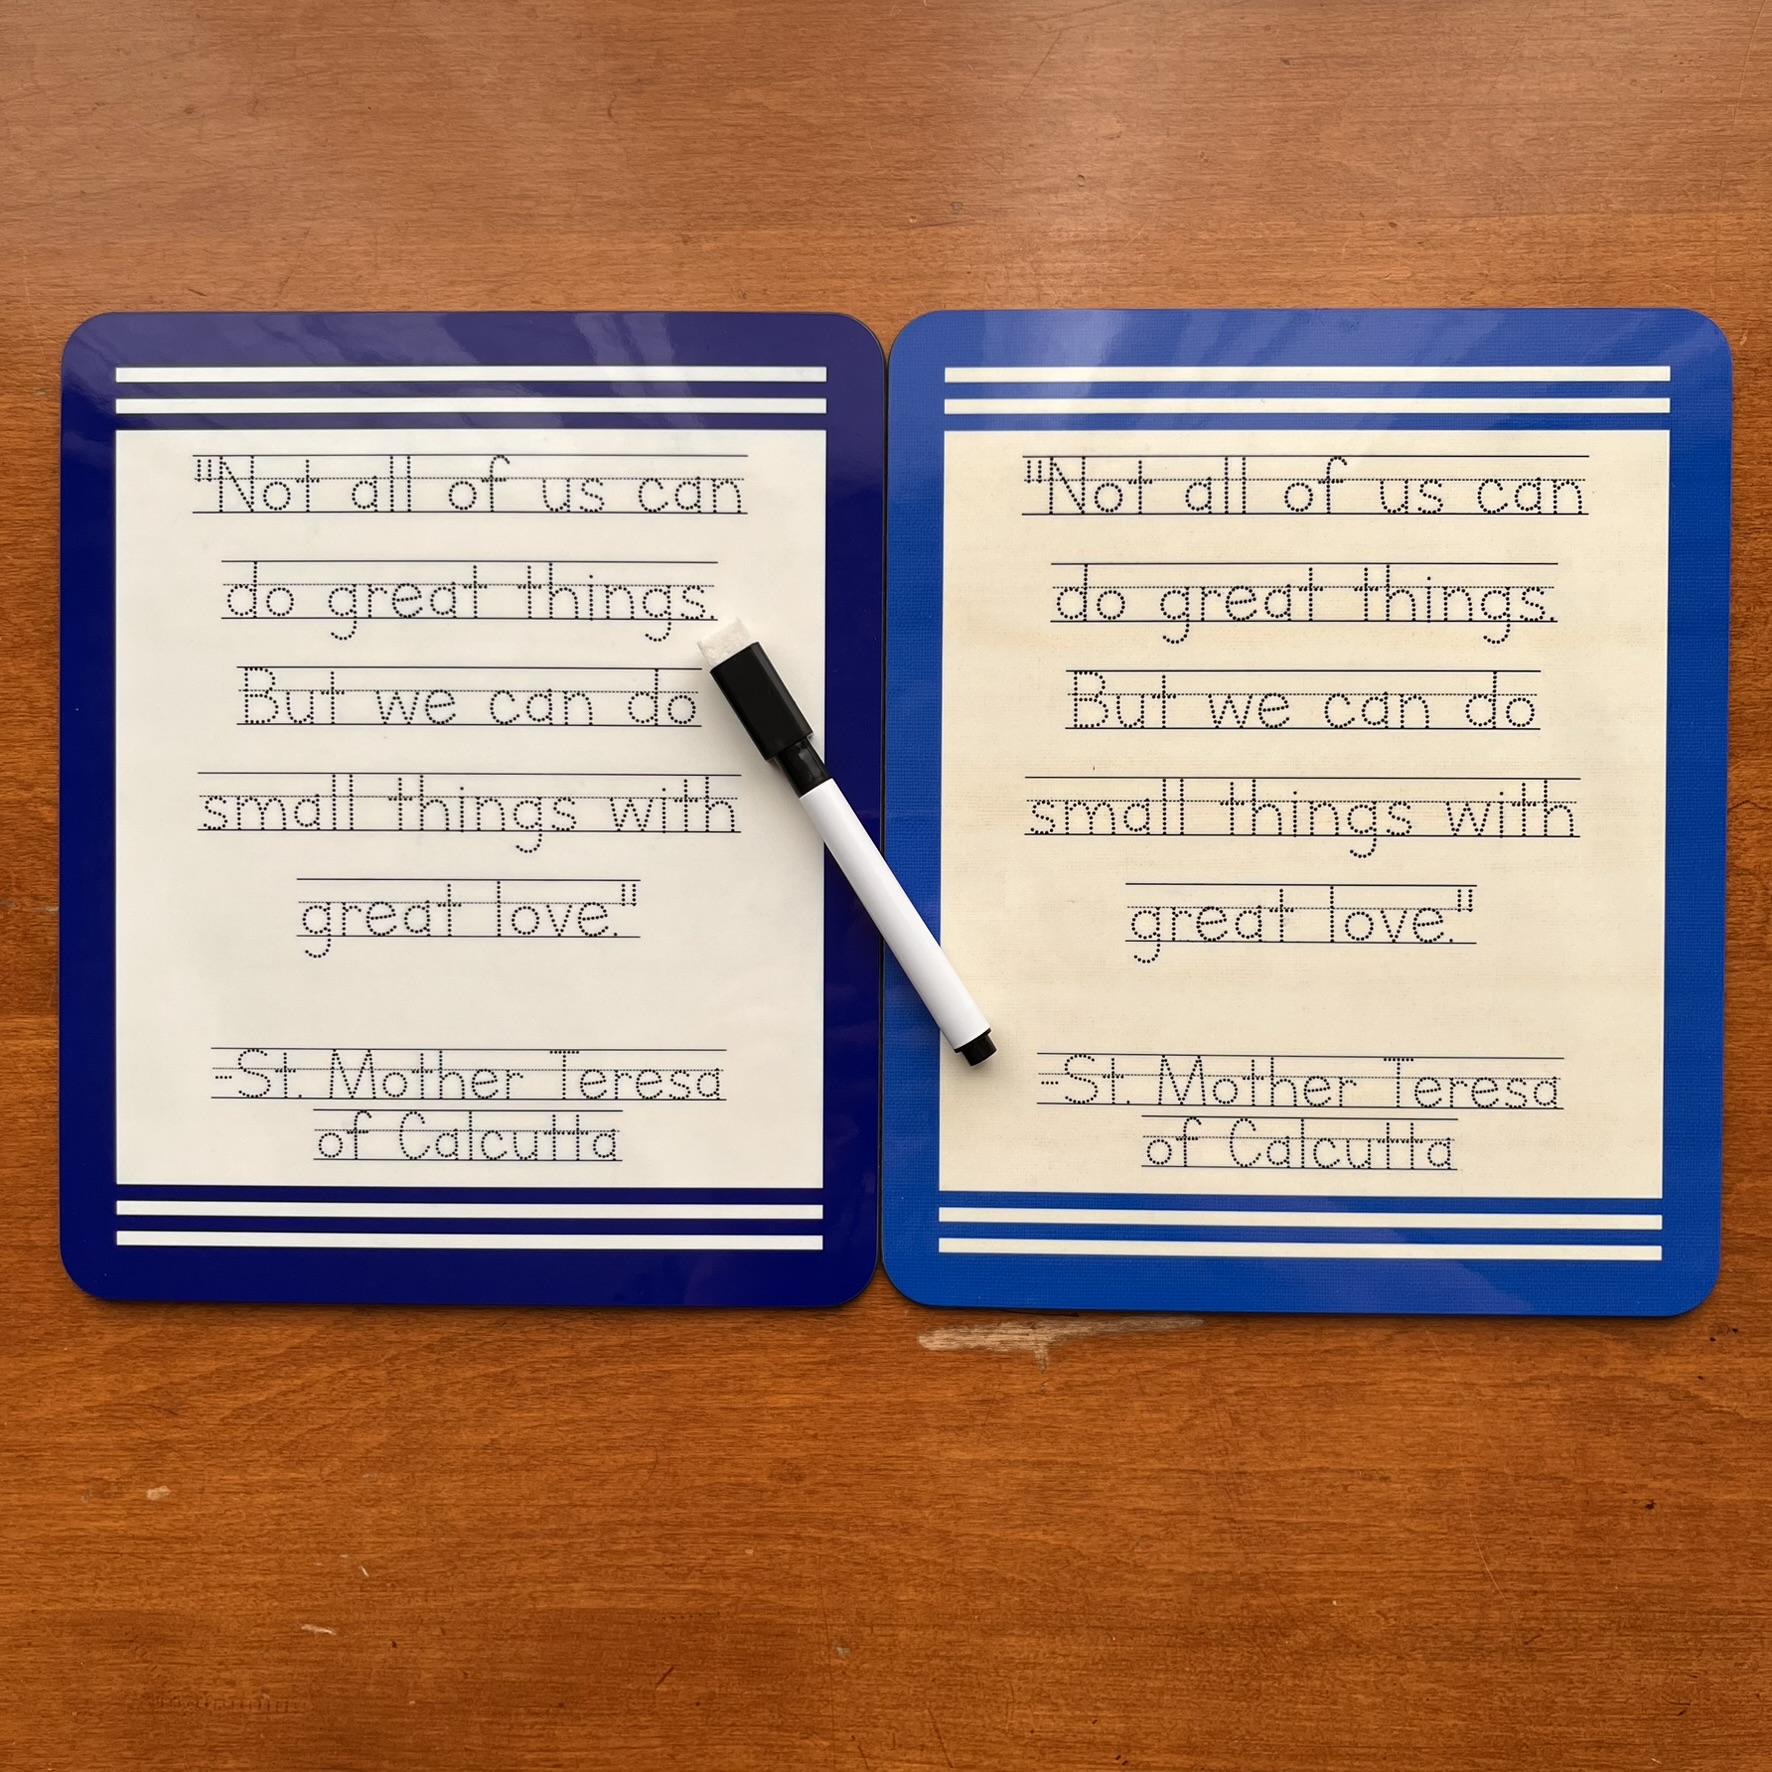 "Not all of us can
do great things.
But we can do
small things with
great love."
-St. Mother Teresa
of Calcutta
"Not all of us can
do great things.
But we can do
small things with
great love."
-St. Mother Teresa
of Calcutta